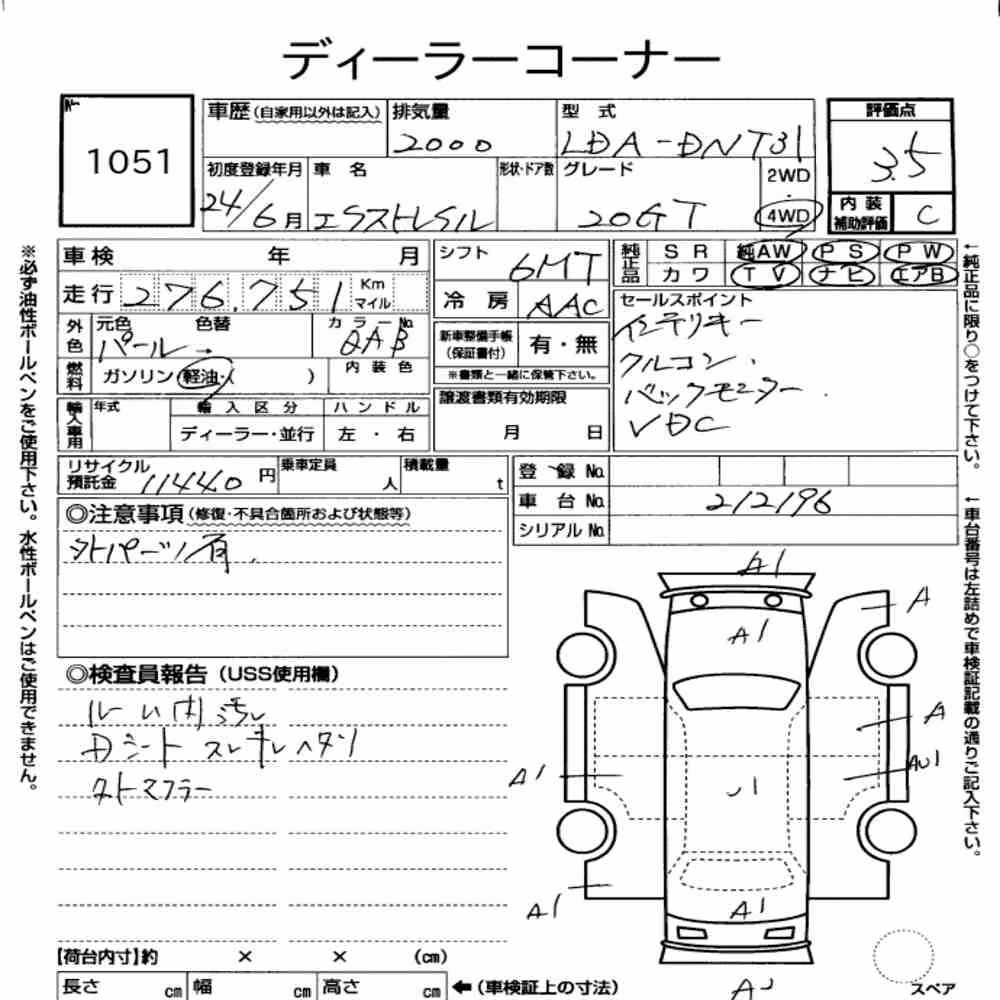 ディーラーコーナー
No.
1051
車歴(自家用以外は記入) 排気量 2000 型式 LDA-DNT31
評価点 3.5
初度登録年月 24/6月 車名 エクストレイル 形状・ドア数 グレード 20GT 2WD 4WD
内装補助評価 C
車検 年 月
シフト 6MT
純正品 SR 純AW PS PW
カワ TV ナビ エアB
走行 276,751 Km マイル
冷房 AAC
セールスポイント
インテリキー
クルコン.
バックモニター.
VDC
外色 元色 パール→ 色替 カラーNo. QAB
新車整備手帳(保証書付) 有・無
※書類と一緒に保管下さい。
燃料 ガソリン・軽油・( ) 内装色
譲渡書類有効期限
月 日
輸入車用 年式 輸入区分 ハンドル
ディーラー・並行 左・右
リサイクル預託金 11440円 乗車定員 人 積載量 t
登録No.
車台No. 212196
シリアルNo.
◎注意事項(修復・不具合箇所および状態等)
外パーツ有.
◎検査員報告(USS使用欄)
ルーム内汚レ
Dシート スレキレヘタリ
外マフラー
A1
A1
A
A
A1
AU1
U1
A1
A1
AU
【荷台内寸】約 × × (cm)
長さ cm 幅 cm 高さ cm ←(車検証上の寸法)
スペア
※必ず油性ボールペンをご使用下さい。水性ボールペンはご使用できません。
←純正品に限り○をつけて下さい。
←車台番号は左詰めで車検証記載の通りご記入下さい。